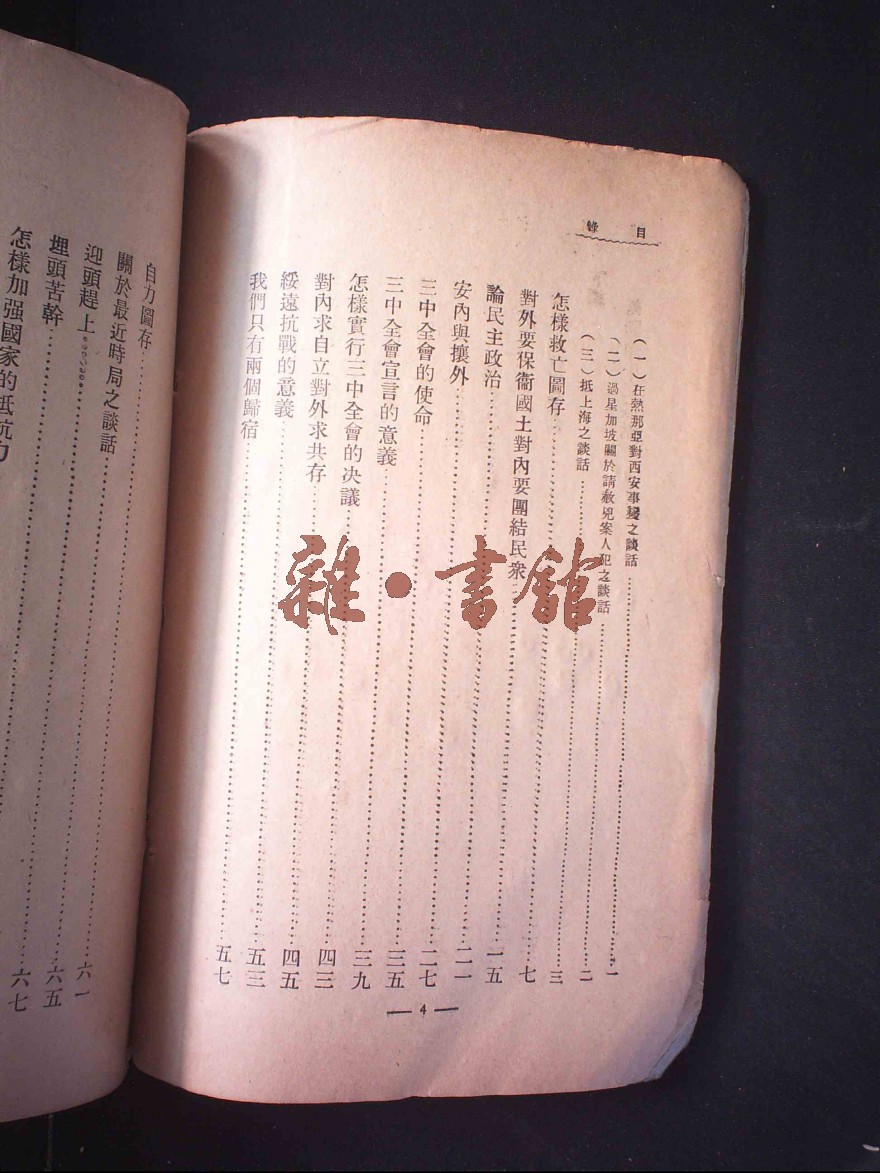 目錄
（一）在熱那亞對西安事變之談話……一
（二）過星加坡關於請赦兇案人犯之談話……二
（三）抵上海之談話……三
怎樣救亡圖存……七
對外要保衞國土對內要團結民衆……一五
論民主政治……二一
安內與攘外……二七
三中全會的使命……三五
三中全會宣言的意義……三九
怎樣實行三中全會的决議……四三
對內求自立對外求共存……四五
綏遠抗戰的意義……五三
我們只有兩個歸宿……五七
— 4 —
自力圖存……
關於最近時局之談話……六一
迎頭趕上……六五
埋頭苦幹……六七
怎樣加强國家的抵抗力
雜·書館